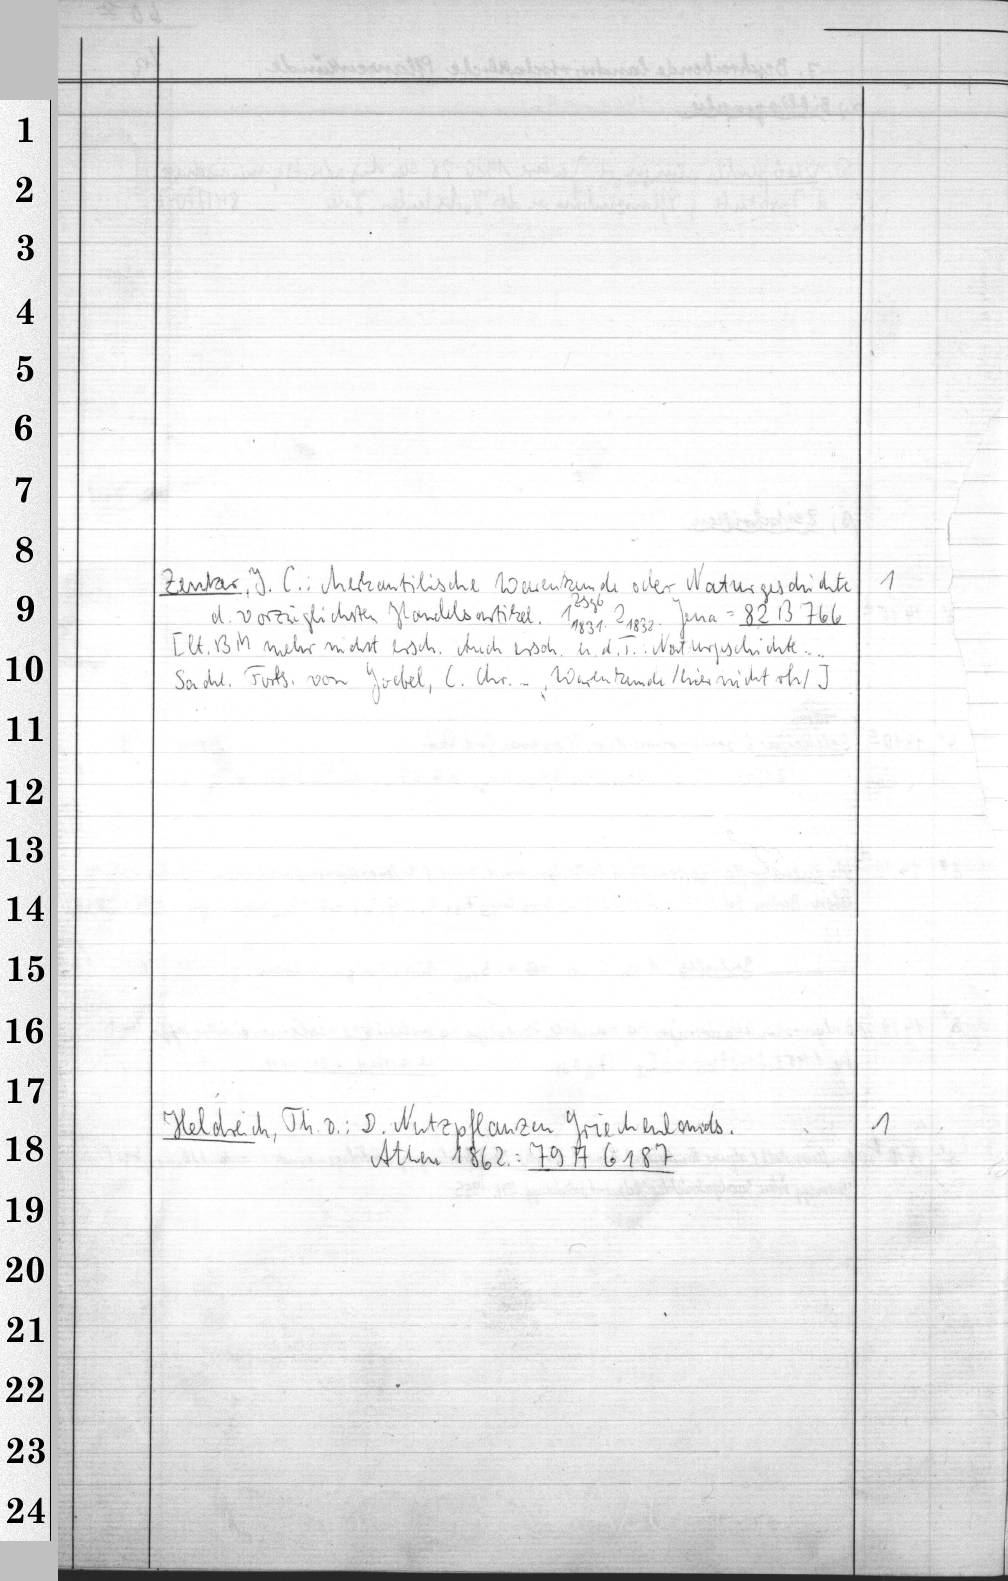 1
2
3
4
5
6
7
8
Zenker, J. C.: Merkantilische Warenkunde oder Naturgeschichte 1
9
d. vorzüglichsten Handelsartikel. 1 1831. 2 1832. Jena = 82 B 766
[lt. BM mehr nicht ersch. Auch ersch. u. d. T.: Naturgeschichte...
10
Sachl. Forts. von Goebel, C. Chr. - Warenkunde /hier nicht vh/]
11
12
13
14
15
16
17
Heldreich, Th. v.: D. Nutzpflanzen Griechenlands. 1
18
Athen 1862.: 79 A 6187
19
20
21
22
23
24